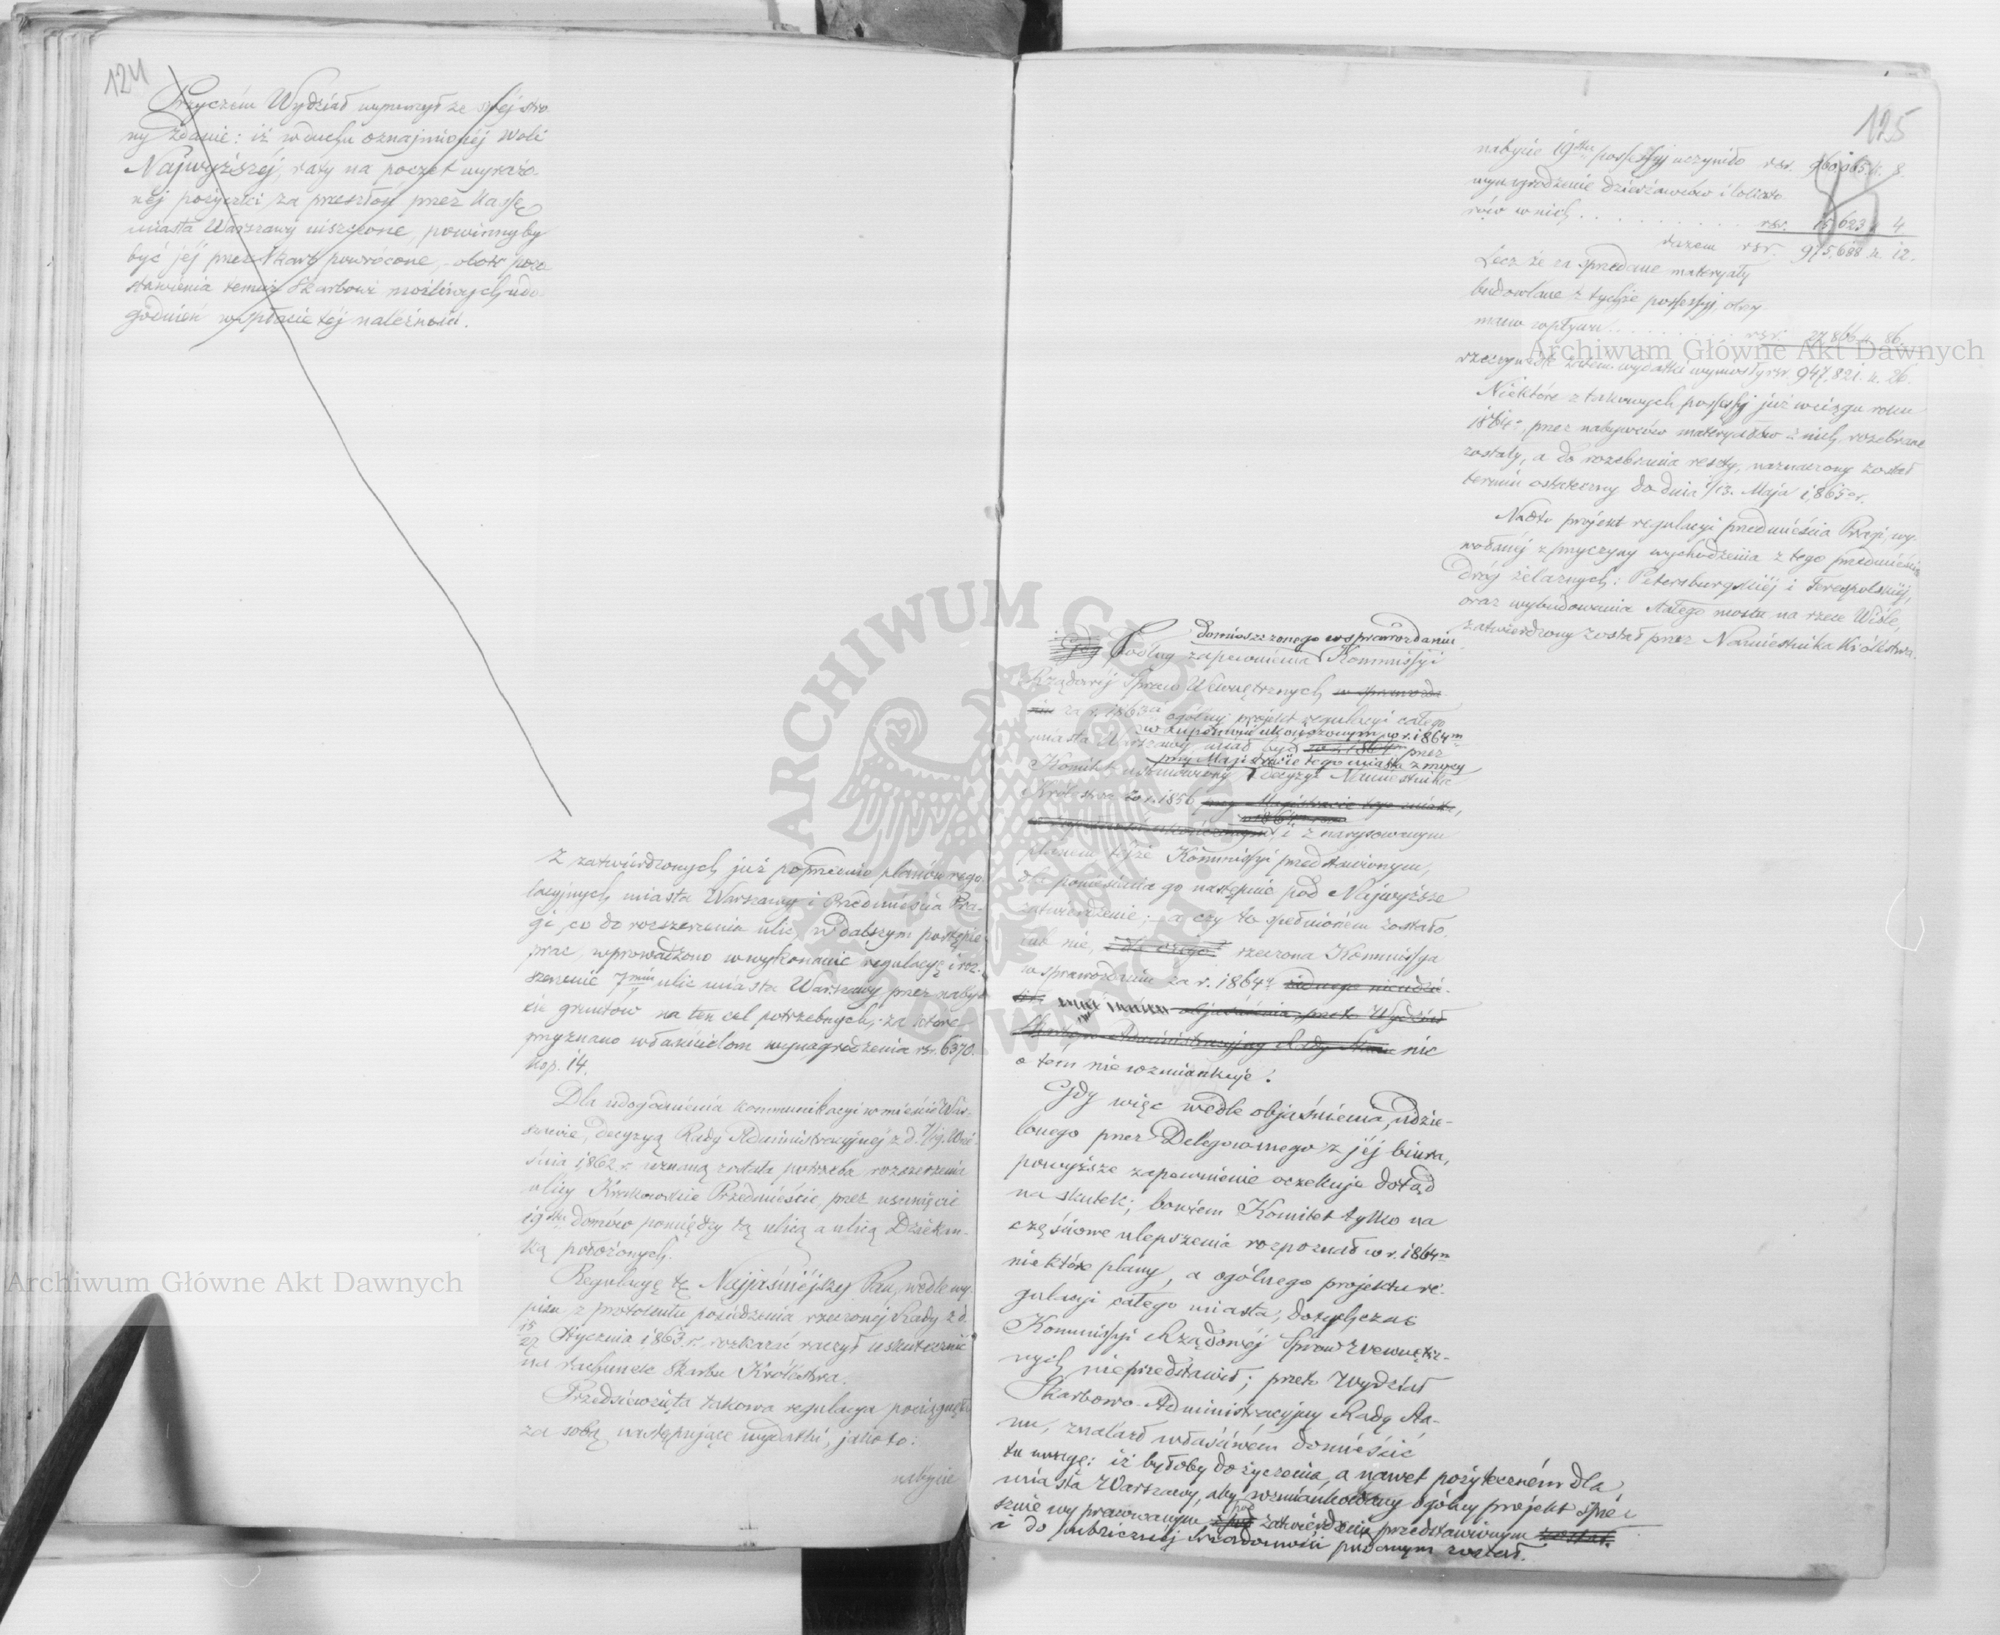 124
Przyczém Wydział wynurzył ze swéj stro-
ny zdanie: iż w duchu oznajmionéj Woli
Najwyższéj, raty na poczet wyrażo-
néj pożyczki za przeszłość przez Kassę
miasta Warszawy uiszczone, powinnyby
być jéj przez Skarb powrócone, obok pozo-
stawienia temuż Skarbowi możliwych udo-
godnień w spłacie téj należności.
Z zatwierdzonych już poprzednio planów regu-
lacyjnych miasta Warszawy i Przedmieścia Pra-
gi, co do rozszerzenia ulic, w dalszym postępie
prac, wprowadzono w wykonanie regulacyę i roz-
szerzenie 7miu ulic miasta Warszawy przez naby-
cie gruntów na ten cel potrzebnych, za które
przyznano właścicielom wynagrodzenia rsr. 6370.
kop. 14.
Dla udogodnienia kommunikacyi w mieście War-
szawie, decyzyą Rady Administracyjnéj z d. 7/19. Wrze-
śnia 1862 r. uznaną została potrzeba rozszerzenia
ulicy Krakowskie Przedmieście, przez usunięcie
19stu domów pomiędzy tą ulicą a ulicą Dziekan-
ką położonych.
Regulacyę tę Najjaśniejszy Pan, wedle wy-
pisu z protokułu posiedzenia rzeczonéj Rady z d.
15/27 Stycznia 1863 r. rozkazać raczył uskutecznić
na rachunek Skarbu Królestwa.
Przedsięwzięta takowa regulacya pociągnęła
za sobą następujące wydatki, jako to:
nabycie
125
nabycie 19stu possessyj uczyniło rsr. 960,065 k. 8
wynagrodzenie dzierżawców i lokato-
rów w nich . . . . . . . . . rsr. 15,623 k. 4
razem rsr. 975,688 k. 12.
Lecz że za sprzedane materyały
budowlane z tychże possessyj, otrzy-
mano wpływu . . . . . . . . rsr. 27,866 k. 86.
rzeczywiste zatem wydatki wynosiły rsr. 947,821. k. 26.
Niektóre z takowych possessyj już w ciągu roku
1864o, przez nabywców materyałów z nich, rozebrane
zostały, a do rozebrania reszty, naznaczony został
termin ostateczny do dnia 1/13. Maja 1865o r.
Nadto projekt regulacyi przedmieścia Pragi, wy-
wołanéj z przyczyny wychodzenia z tego przedmieścia
dróg żelaznych: Petersburgskiéj i Terespolskiéj,
oraz wybudowania stałego mostu na rzece Wiśle,
zatwierdzony został przez Namiestnika Królestwa.
domieszczonego w sprawozdaniu
Podług zapewnienia Kommissyi
Rządowéj Spraw Wewnętrznych w sprawozda-
niu za r. 1863ci ogólny projekt regulacyi całego
w zupełności ukończonym w r. 1864m
miasta Warszawy miał być w r. 1864m przez
przy Magistracie tego miasta z mocy
Komitet ustanowiony decyzyi Namiestnika
Królestwa z r. 1856 przy Magistracie tego miasta,
w 1864m r.
w zupełności ukończonym i z narysowanym
planem téjże Kommissyi przedstawionym,
dla poniesienia go następnie pod Najwyższe
zatwierdzenie; a czy to spełnioném zostało,
lub nie, rzeczona Kommissya
w sprawozdaniu za r. 1864ty żadnego nie udzie-
liła objaśnienia, przeto Wydział
Skarbowo Administracyjny Rady Stanu nic
o tém nie wzmiankuje.
Gdy więc wedle objaśnienia, udzie-
lonego przez Delegowanego z jéj biura,
powyższe zapewnienie oczekuje dotąd
na skutek; bowiem Komitet tylko na
częściowe ulepszenia rozpoznał w r. 1864m
niektóre plany, a ogólnego projektu re-
gulacyi całego miasta, dotychczas
Kommissyi Rządowéj Spraw Wewnętrz-
nych nie przedstawił; przeto Wydział
Skarbowo-Administracyjny Rady Sta-
nu, znalazł właściwém domieścić
tu uwagę: iż byłoby do życzenia, a nawet pożyteczném dla
miasta Warszawy, aby wzmiankowany ogólny projekt spie-
pod
sznie wypracowanym zatwierdzenie przedstawionym został.
i do publicznéj wiadomości podanym został.
Archiwum Główne Akt Dawnych
Archiwum Główne Akt Dawnych
ARCHIWUM GŁÓWNE AKT DAWNYCH